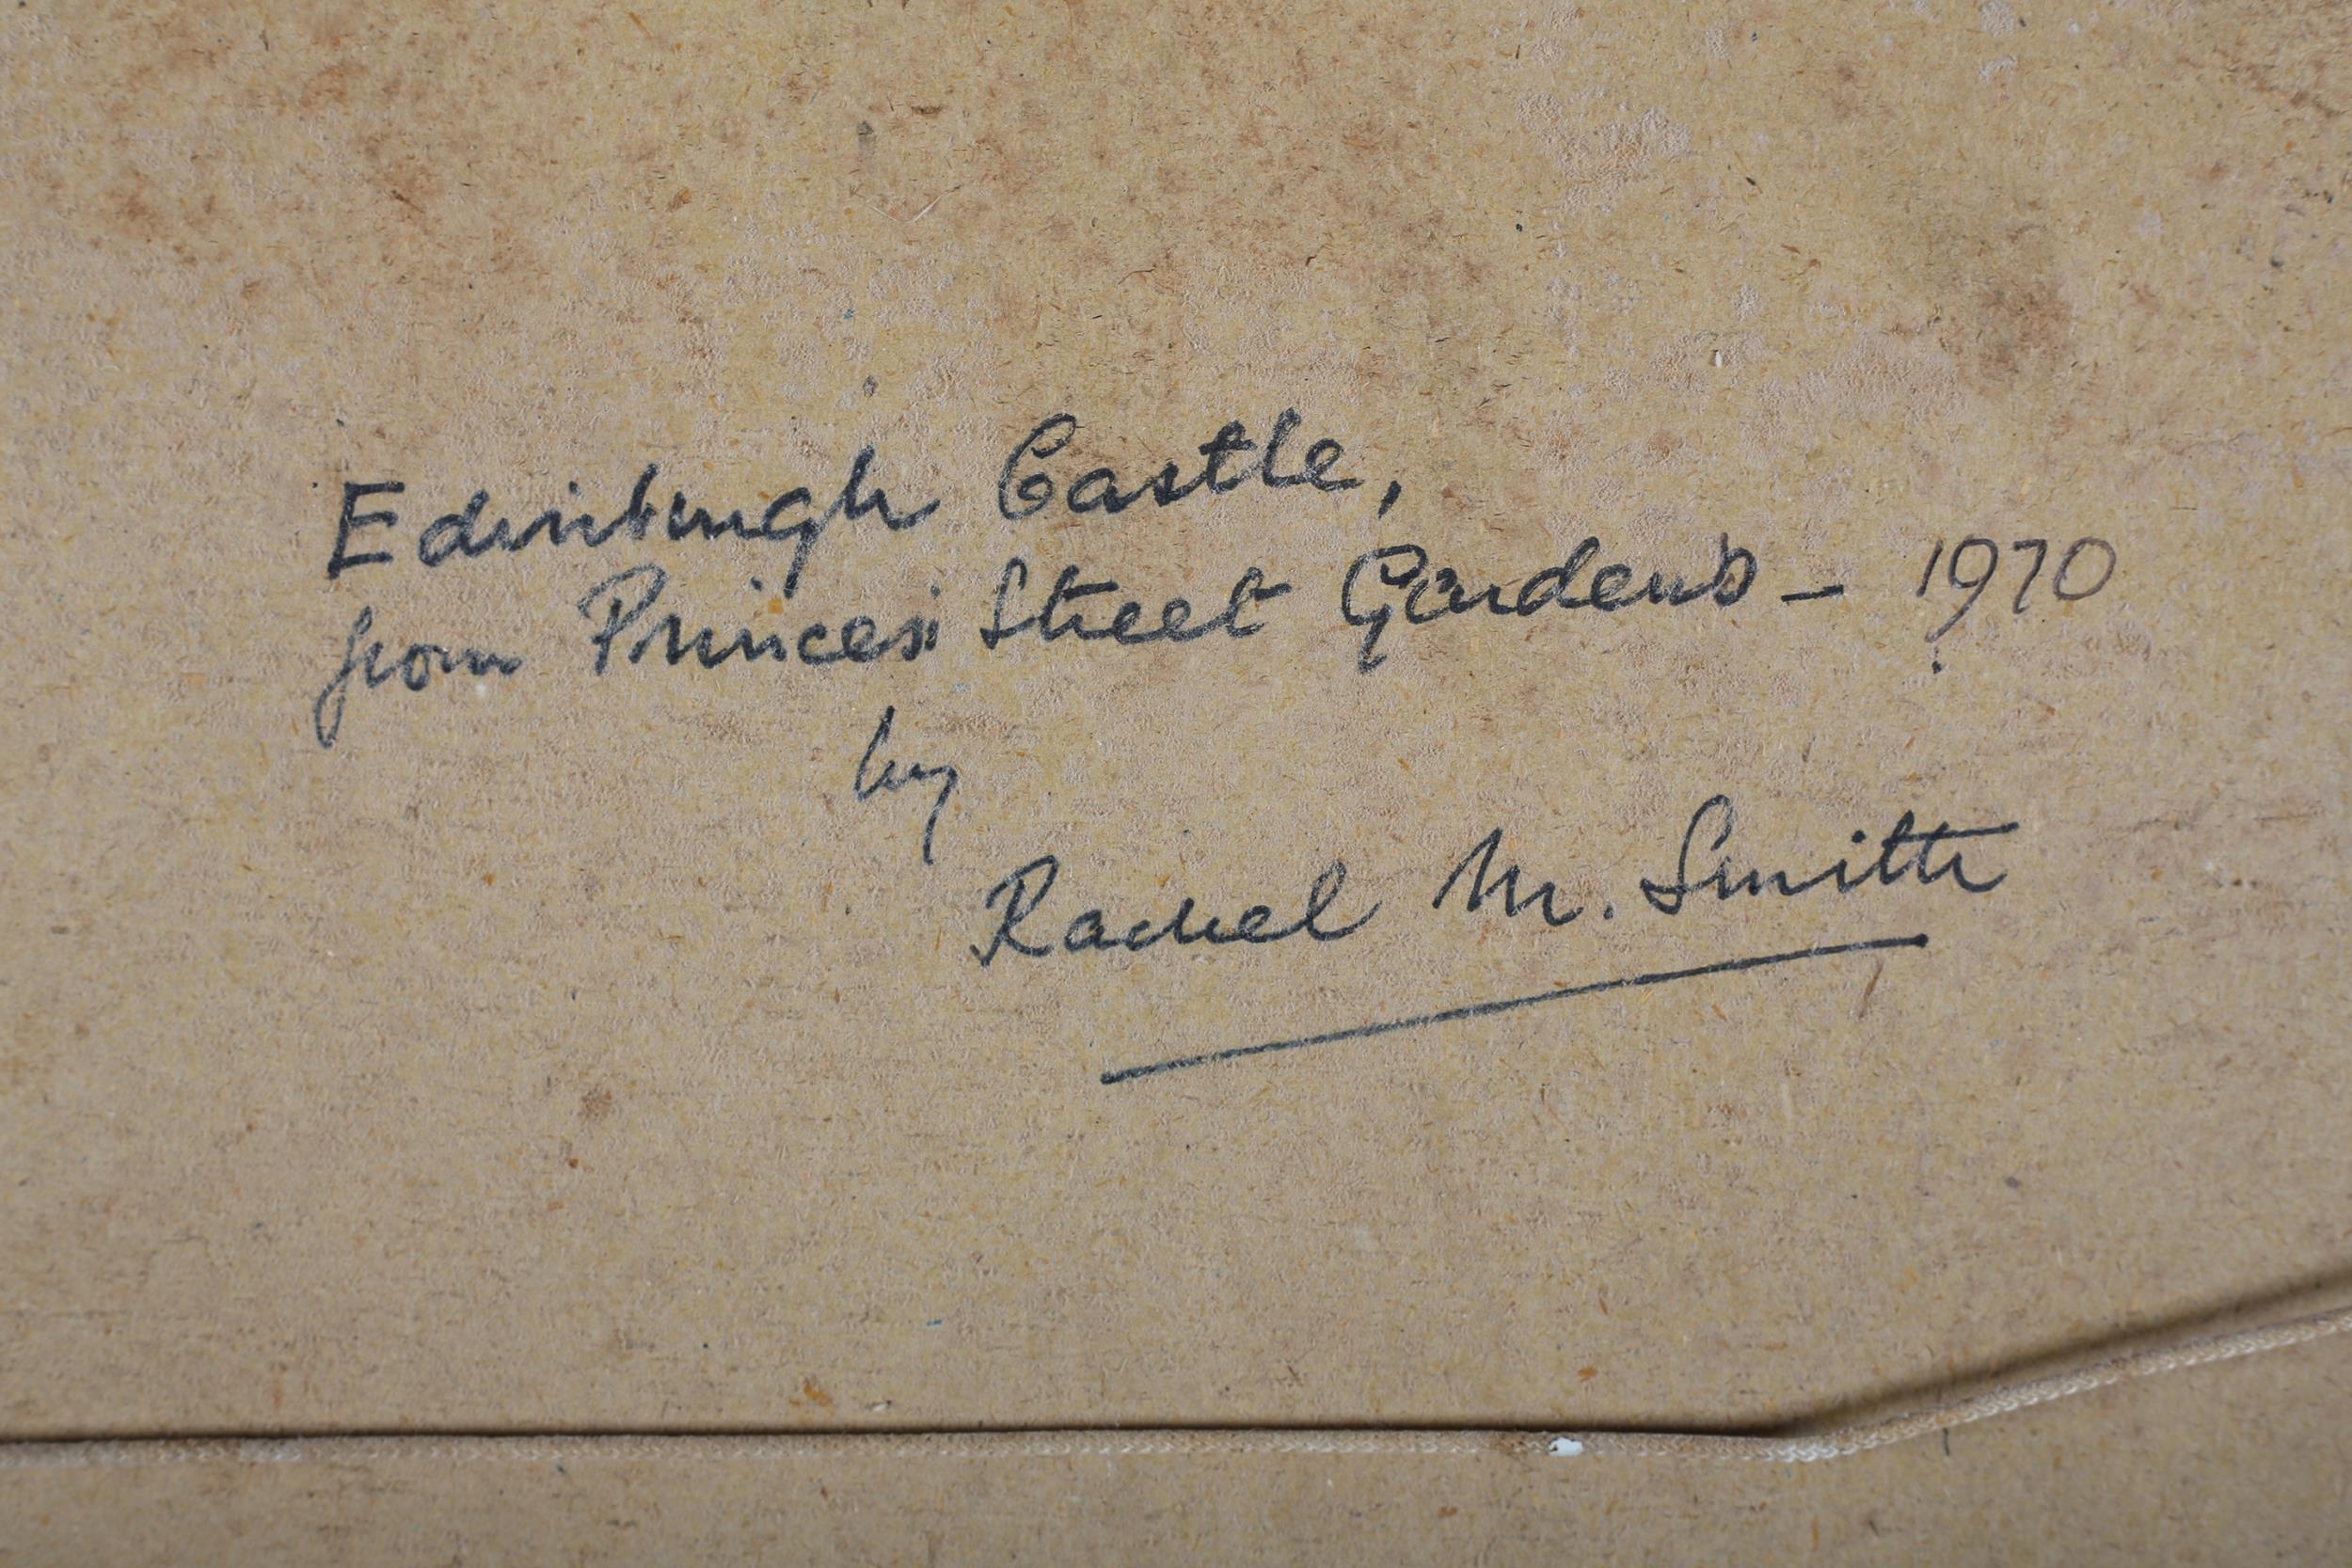 Edinburgh Castle,
from Princes Street Gardens – 1970
by
Rachel M. Smith